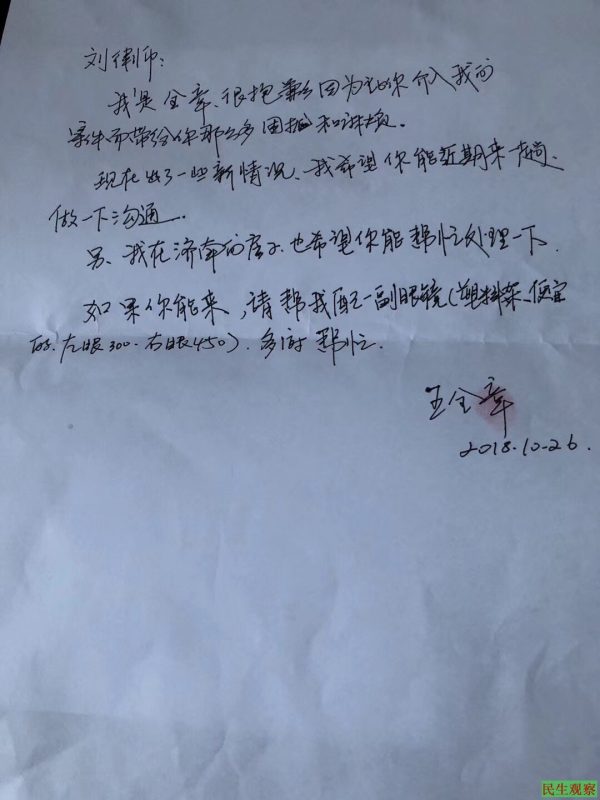 刘律师：
我是全章、很抱歉因为你介入我的
案件而带给你那么多困扰和麻烦。
现在出了一些新情况、我希望你能近期来一趟、
做一下沟通。
另、我在济南的房子、也希望你能帮忙处理一下．
如果你能来，请帮我配一副眼镜（塑料架、便宜
的、左眼300．右眼450）．多谢帮忙．
王全章
2018.10-26.
民生观察